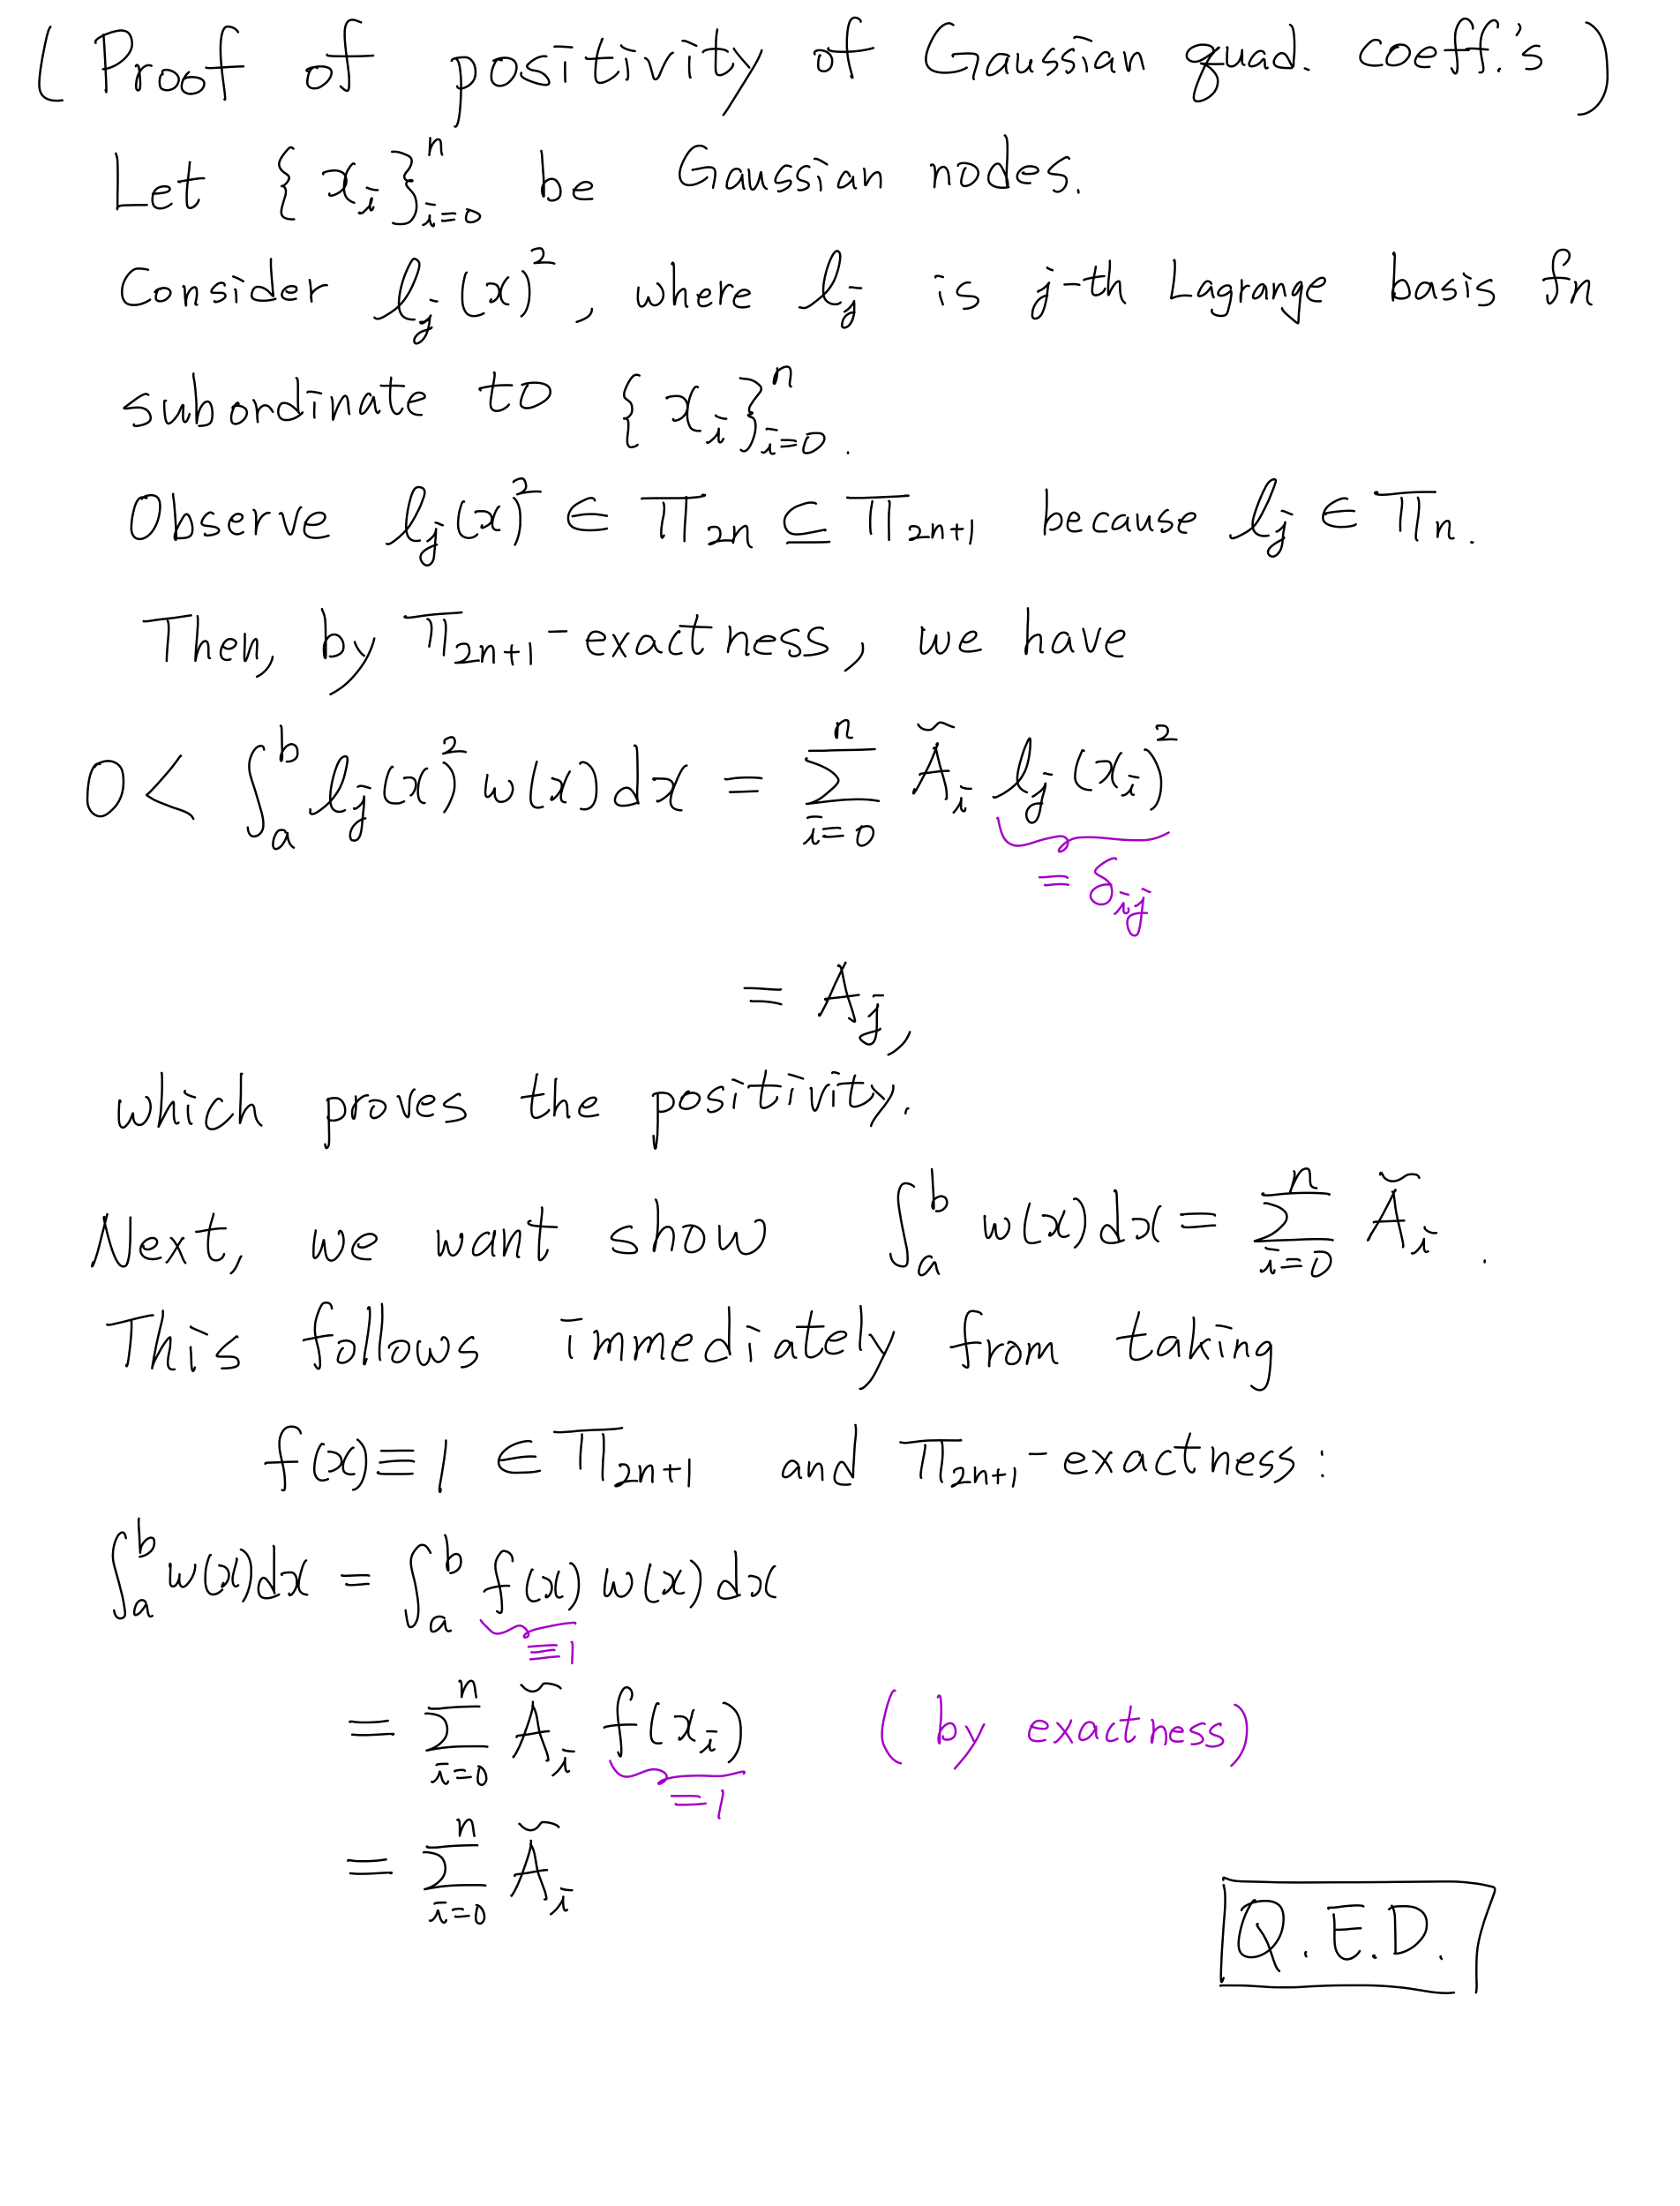 (Proof of positivity of Gaussian quad. coeff.'s)
Let {x_i}_{i=0}^n be Gaussian nodes.
Consider l_j(x)^2, where l_j is j-th Lagrange basis fn
subordinate to {x_i}_{i=0}^n.
Observe l_j(x)^2 ∈ Π_{2n} ⊆ Π_{2n+1} because l_j ∈ Π_n.
Then, by Π_{2n+1}-exactness, we have
0 < ∫_a^b l_j(x)^2 w(x)dx = Σ_{i=0}^n Ã_i l_j(x_i)^2
= δ_{ij}
= A_j,
which proves the positivity.
Next, we want show ∫_a^b w(x)dx = Σ_{i=0}^n Ã_i.
This follows immediately from taking
f(x) ≡ 1 ∈ Π_{2n+1} and Π_{2n+1}-exactness:
∫_a^b w(x)dx = ∫_a^b f(x) w(x)dx
≡ 1
= Σ_{i=0}^n Ã_i f(x_i) (by exactness)
= 1
= Σ_{i=0}^n Ã_i
Q.E.D.